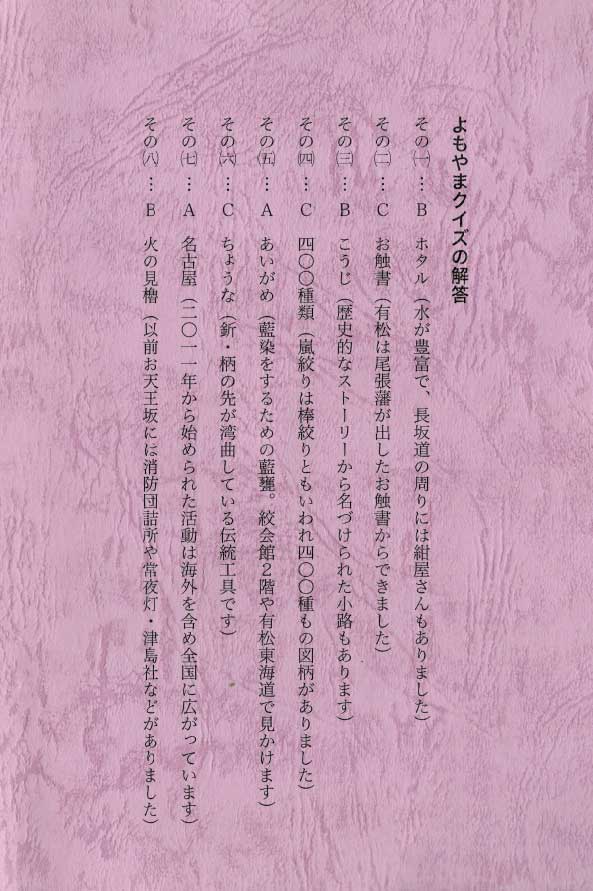 よもやまクイズの解答
その㈠ … B　ホタル（水が豊富で、長坂道の周りには紺屋さんもありました）
その㈡ … C　お触書（有松は尾張藩が出したお触書からできました）
その㈢ … B　こうじ（歴史的なストーリーから名づけられた小路もあります）
その㈣ … C　四〇〇種類（嵐絞りは棒絞りともいわれ四〇〇種もの図柄がありました）
その㈤ … A　あいがめ（藍染をするための藍甕。絞会館２階や有松東海道で見かけます）
その㈥ … C　ちょうな（釿・柄の先が湾曲している伝統工具です）
その㈦ … A　名古屋（二〇一一年から始められた活動は海外を含め全国に広がっています）
その㈧ … B　火の見櫓（以前お天王坂には消防団詰所や常夜灯・津島社などがありました）